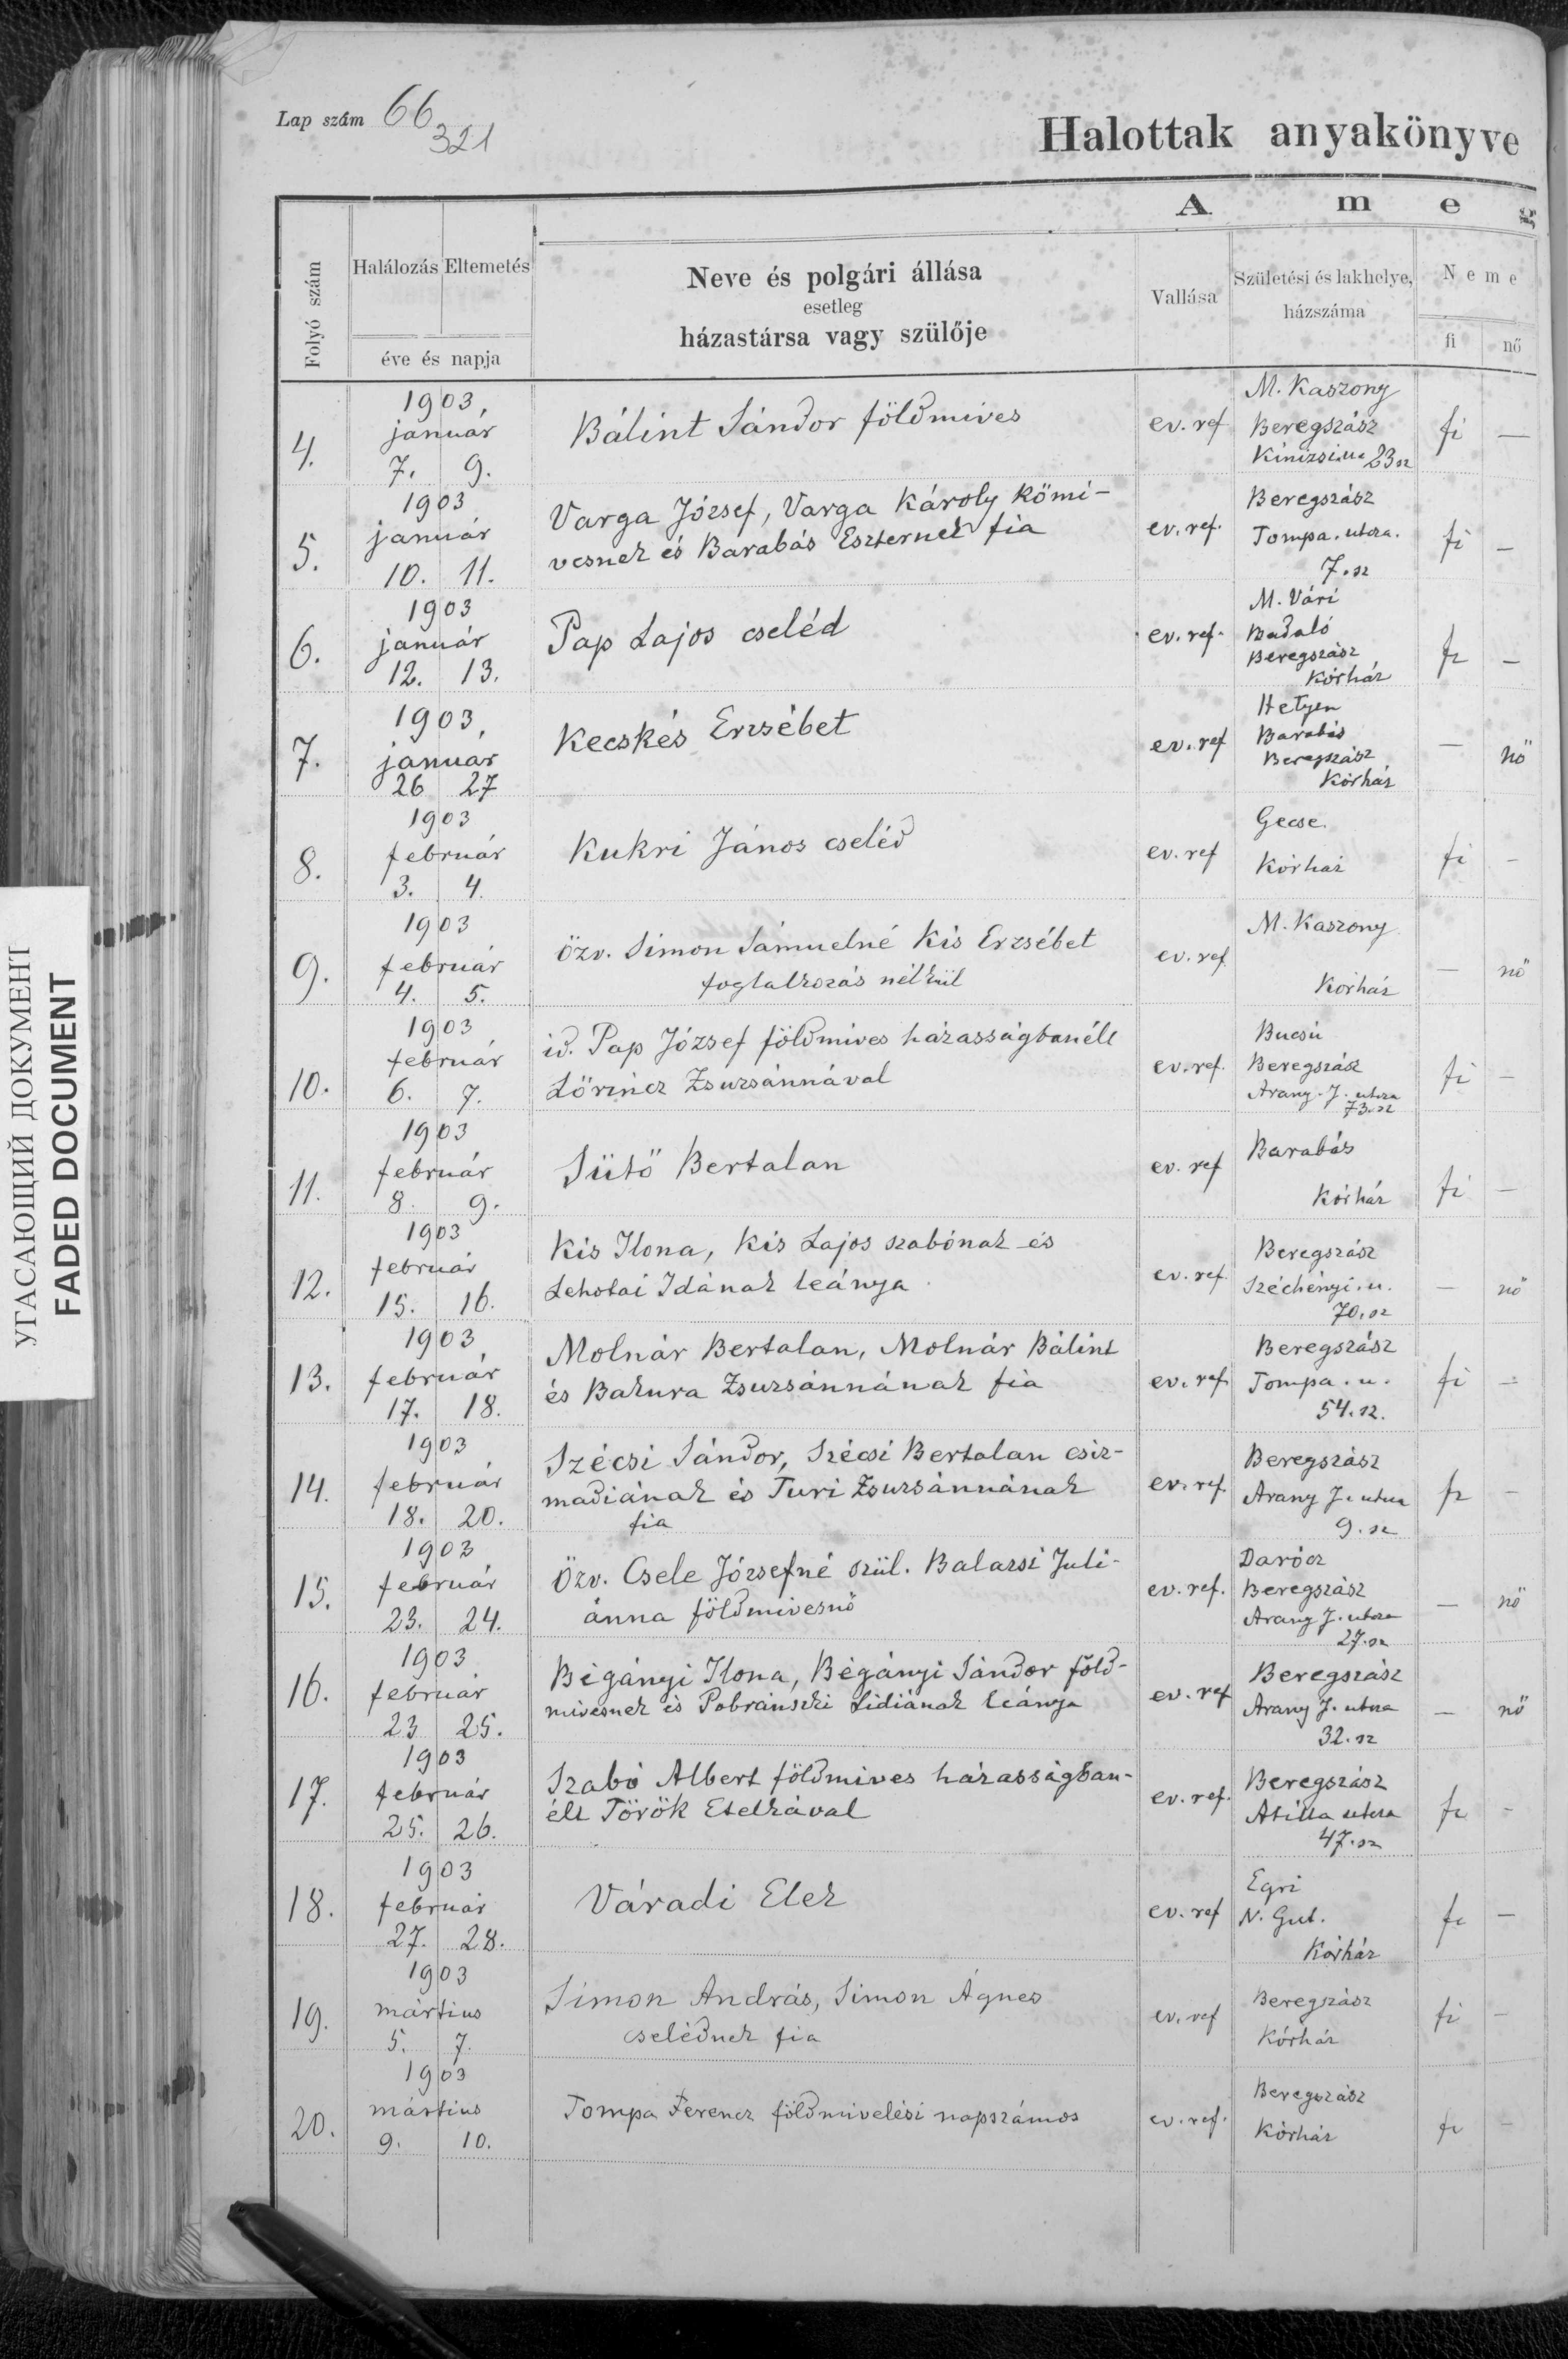 Lap szám 66
321
Halottak anyakönyve
A m e g
Folyó szám
Halálozás Eltemetés
éve és napja
Neve és polgári állása
esetleg
házastársa vagy szülője
Vallása
Születési és lakhelye,
házszáma
Neme
fi nő
1903,
4. január
7. 9.
Bálint Sándor földmives
ev. ref
M. Kaszony
Beregszász
Kinizsi u. 23 sz
fi —
1903
5. január
10. 11.
Varga József, Varga Károly kőmi-
vesnek és Barabás Eszternek fia
ev. ref.
Beregszász
Tompa. utcza.
7. sz
fi —
1903
6. január
12. 13.
Pap Lajos cseléd
ev. ref.
M. Vári
Badaló
Beregszász
Kórház
fi —
1903,
7. január
26 27
Kecskés Erzsébet
ev. ref
Hetyen
Barabás
Beregszász
Kórház
— nő
1903
8. február
3. 4.
Kukri János cseléd
ev. ref
Gecse.
Kórház
fi —
1903
9. február
4. 5.
özv. Simon Sámuelné Kis Erzsébet
foglalkozás nélkül
ev. ref.
M. Kaszony
Kórház
— nő
1903
10. február
6. 7.
id. Pap József földmives házasságban élt
Lőrincz Zsuzsánnával
ev. ref.
Bucsú
Beregszász
Arany. J. utcza
73. sz
fi —
1903
11. február
8. 9.
Sütő Bertalan
ev. ref
Barabás
Kórház
fi —
1903
12. február
15. 16.
Kis Ilona, Kis Lajos szabónak és
Lehotai Idának leánya
ev. ref.
Beregszász
Széchényi. u.
70. sz
— nő
1903
13. február
17. 18.
Molnár Bertalan, Molnár Bálint
és Bakura Zsuzsánnának fia
ev. ref.
Beregszász
Tompa. u.
54. sz.
fi —
1903
14. február
18. 20.
Szécsi Sándor, Szécsi Bertalan csiz-
madiának és Turi Zsuzsánnának
fia
ev. ref.
Beregszász
Arany J. utcza
9. sz
fi —
1903
15. február
23. 24.
Özv. Csele Józsefné szül. Balazsi Juli-
ánna földmivesnő
ev. ref.
Darócz
Beregszász
Arany J. utcza
27. sz
— nő
1903
16. február
23 25.
Bégányi Ilona, Bégányi Sándor föld-
mivesnek és Pobránszki Lidiának leánya
ev. ref
Beregszász
Arany J. utcza
32. sz
— nő
1903
17. február
25. 26.
Szabó Albert földmives házasságban-
élt Török Etelkával
ev. ref.
Beregszász
Atilla utcza
47. sz
fi -
1903
18. február
27. 28.
Váradi Elek
ev. ref
Egri
N. Gut.
Kórház
fi —
1903
19. mártius
5. 7.
Simon András, Simon Ágnes
cselédnek fia
ev. ref
Beregszász
Kórház
fi —
1903
20. mártius
9. 10.
Tompa Ferencz földmivelési napszámos
ev. ref.
Beregszász
Kórház
fi —
УГАСАЮЩИЙ ДОКУМЕНТ
FADED DOCUMENT